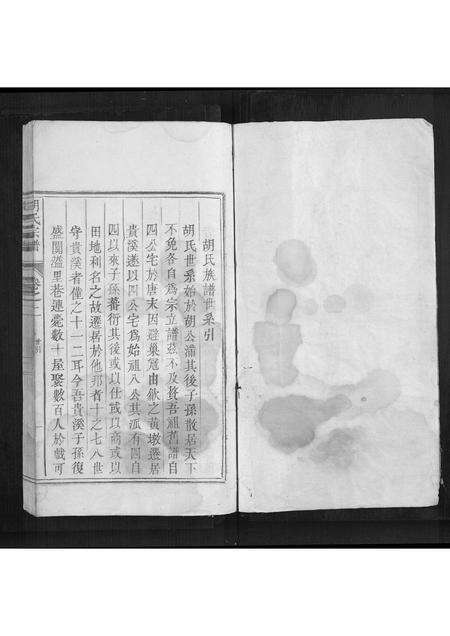 胡氏族譜世系引
胡氏世系始於胡公滿其後子孫散居天下
不免各自為宗立譜茲不及贅吾祖舊譜自
四公宅於唐末因避巢寇由歙之黃墩遷居
貴溪遂以四公宅為始祖八公其派有四自
四以來子孫蕃衍其後或以仕或以商或以
田地利名之故遷居於他郡者十之七八世
守貴溪者僅之十一二耳今吾貴溪子孫復
盛閭溢里巷連甍數十屋聚數百人於戲可
胡氏宗譜
卷之二